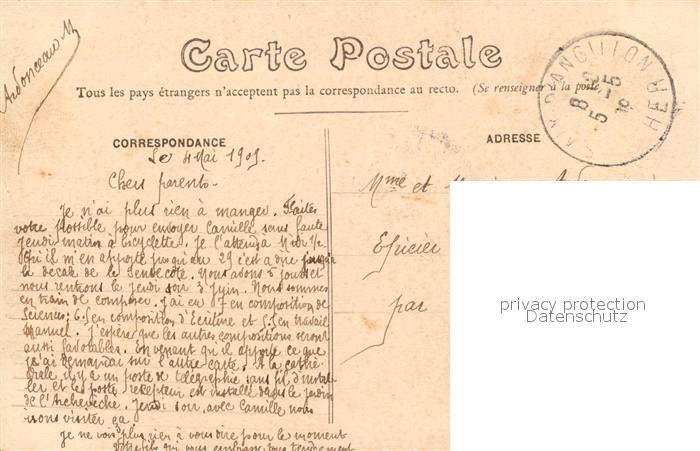 Ardonceau M
Carte Postale
Tous les pays étrangers n'acceptent pas la correspondance au recto. (Se renseigner à la poste)
D'ANGILLON
CHER
8
5 - 5
CORRESPONDANCE
ADRESSE
Le 4 Mai 1909.
Chers parents.
Je n'ai plus rien à manger. Faites
votre possible pour envoyer Camille sans faute
jeudi matin à bicyclette. Je l'attendrai
qu'il m'en apporte jusqu'au 29 c'est a dire jusqu'a
la de la Pentecôte. Nous avons 5 jours et
nous rentrons le jeudi soir 3 juin. Nous sommes
en train de composer. J'ai eu 7 en composition de
Sciences; 6.5 en composition d'Ecriture et 5.5 en travail
Manuel. J'espère que les autres compositions seront
aussi favorables. En venant qu'il apporte ce que
j'ai demandai sur l'autre carte. A la cathé-
drale il y a un poste de télégraphie sans fil d'instal-
ler et le poste récepteur est installé dans le jardin
de l'Archevêche. Jeudi soir avec Camille nous
irons visiter ça
je ne vois plus rien à vous dire pour le moment
Votre fils qui vous embrasse tous tendrement
Mme et
Epicier
par
privacy protection
Datenschutz